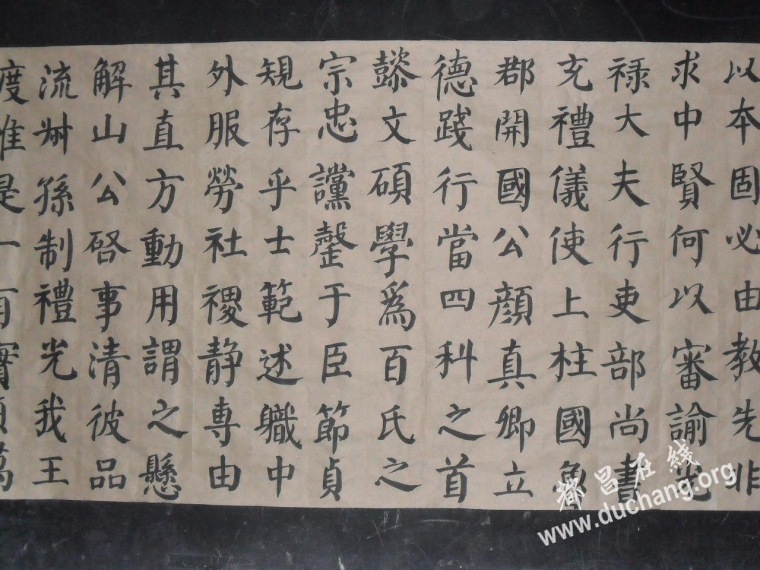 以本固必由教先非
求中賢何以審諭光
禄大夫行吏部尚書
充禮儀使上柱國魯
郡開國公顏真卿立
德踐行當四科之首
懿文碩學為百氏之
宗忠讜罄于臣節貞
規存乎士範述職中
外服勞社稷静專由
其直方動用謂之懸
解山公啓事清彼品
流叔孫制禮光我王
度惟是一有實萬
都昌在线
www.duchang.org